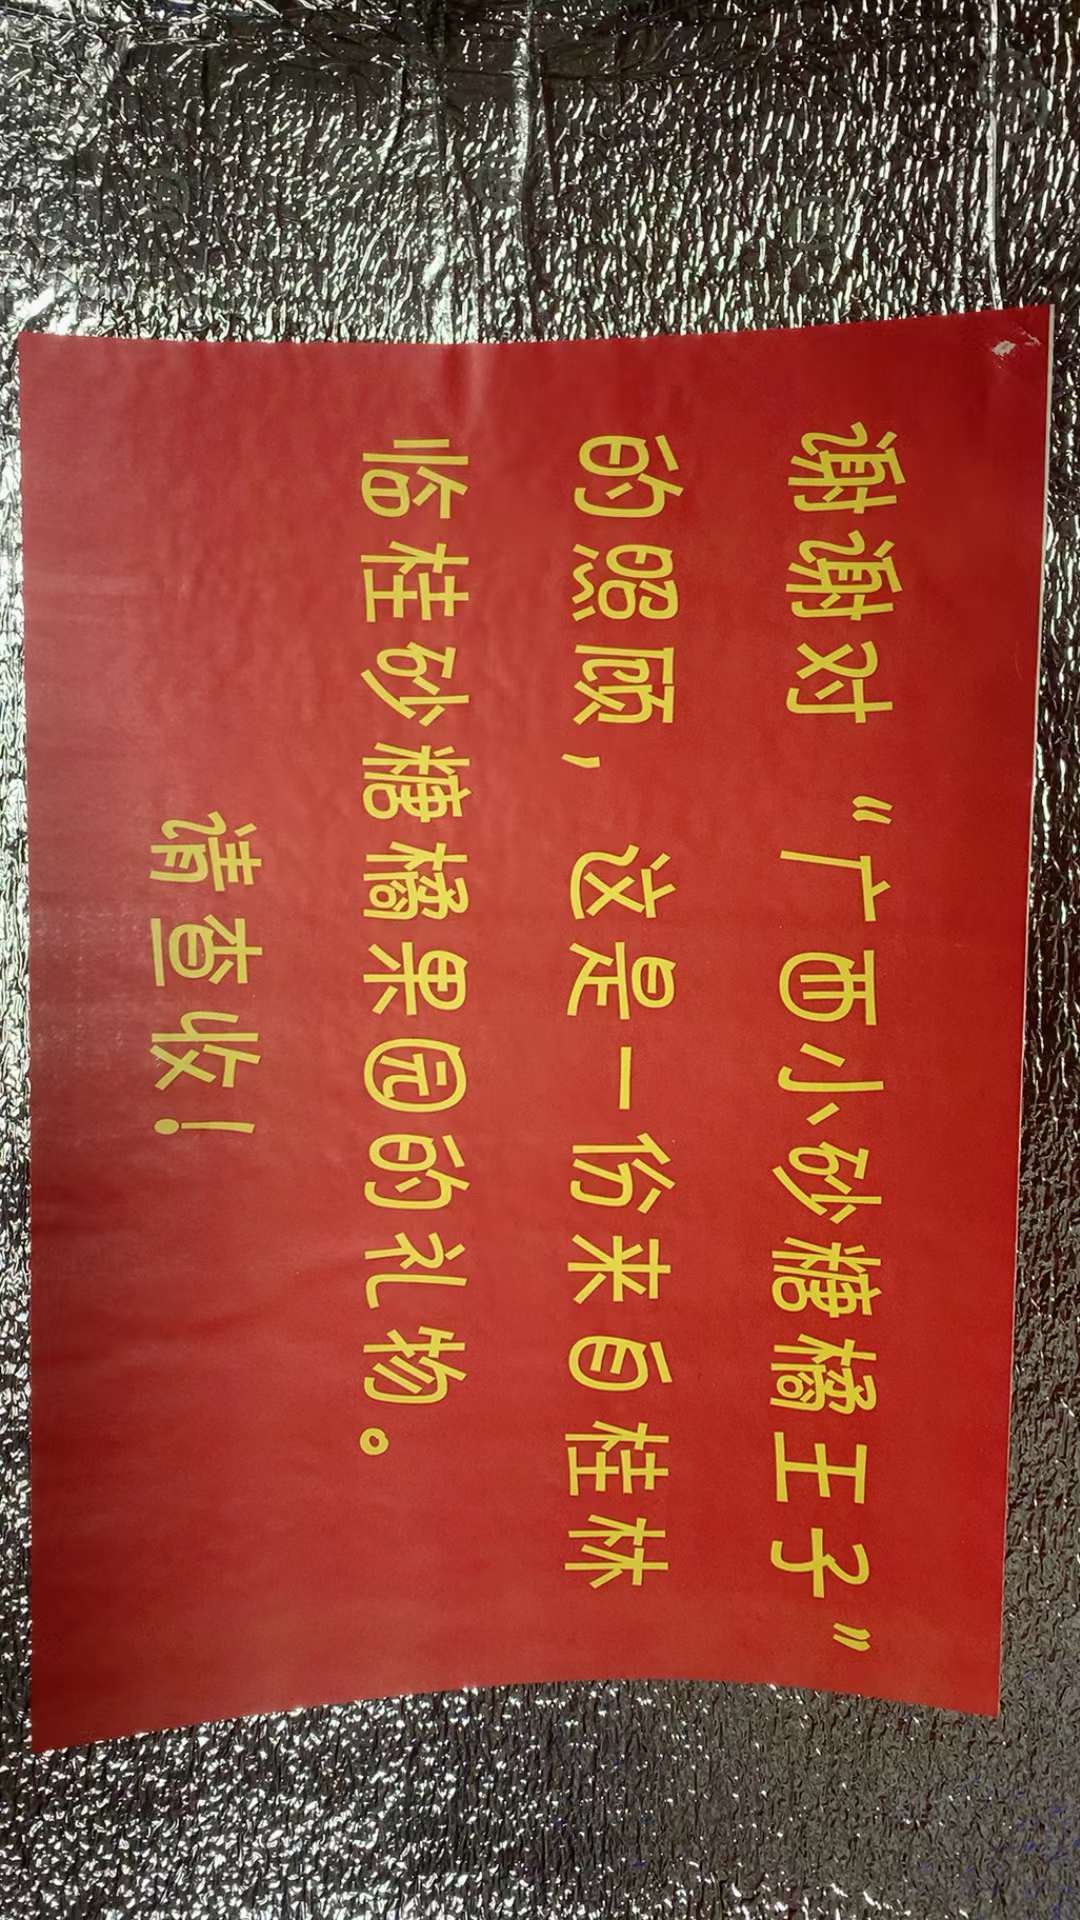 谢谢对“广西小砂糖橘王子”
的照顾，这是一份来自桂林
临桂砂糖橘果园的礼物。
请查收！